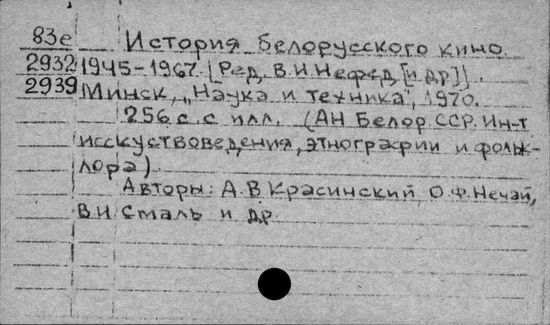 83е История белорусского кино.
2932 1945-1967. [Ред. В.И. Нефед, [и др]].
2939 Минск, „Наука и техника", 1970.
256 с. с илл. (АН Белор. ССР. Ин-т
исскуствоведения, этнографии и фольк-
лора)
Авторы: А.В Красинский, О.Ф. Нечай,
В.И Смаль и др.